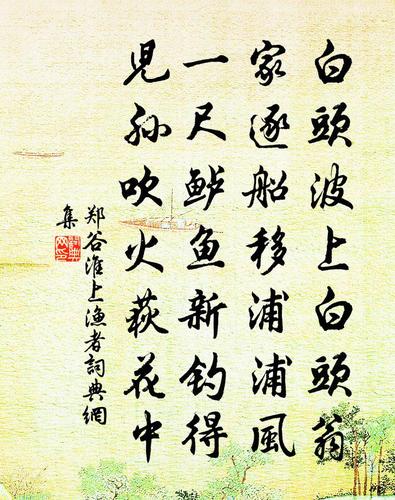 白頭波上白頭翁
家逐船移浦浦風
一尺鲈鱼新钓得
児孙吹火荻花中
郑谷淮上渔者詞典網
集